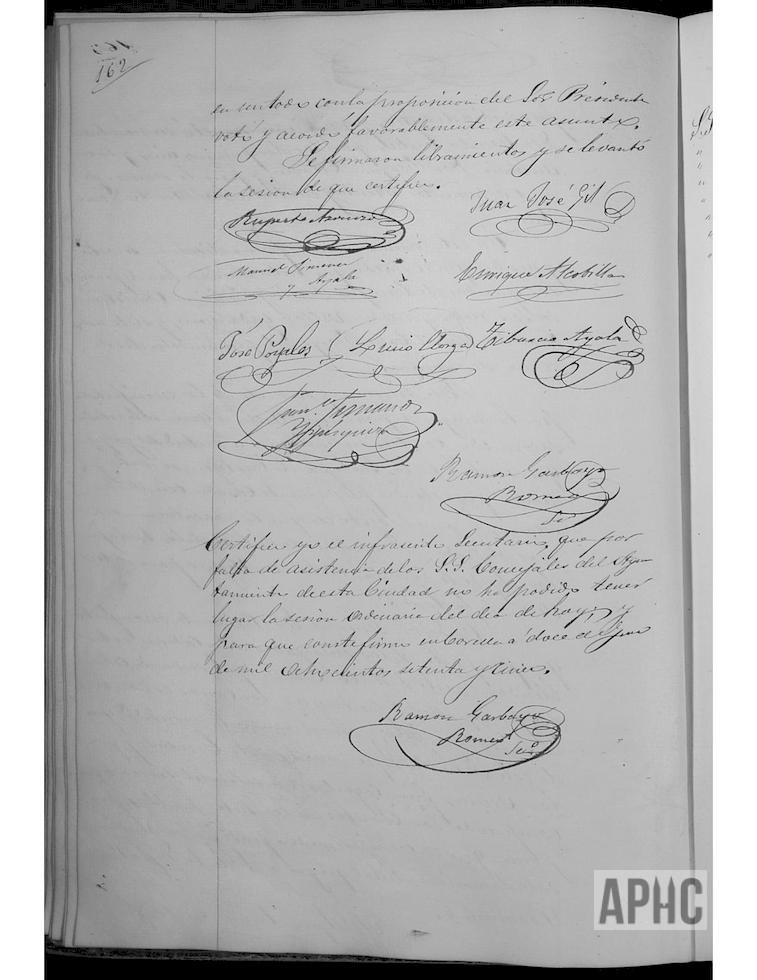 162
en un todo con la proposicion del Sor Presidente
votó y acordó favorablemente este asunto.
Se firmaron libramientos y se levantó
la sesion de que certifico.
Ruperto
Juan José Gil
Manuel Jimenez
y Ayala
Enrique Alcobilla
José Poyales Lucio Tiburcio Ayala
Ramon Garbayo
Romeo
Srio
Certifico yo el infrascrito Secretario, que por
falta de asistencia de los S.S. Concejales del Ayun
tamiento de esta Ciudad no ha podido tener
lugar la sesion ordinaria del dia de hoy, y
para que conste firmo en Corella a doce de
de mil ochocientos setenta y
Ramon Garbayo
Romeo
Srio
APHC